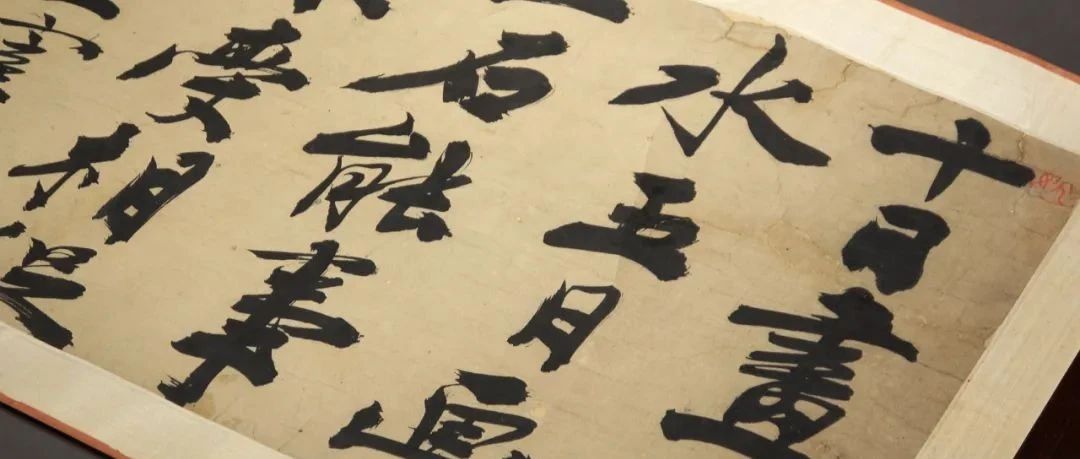 十日畫
水五日画
一石能事
受相